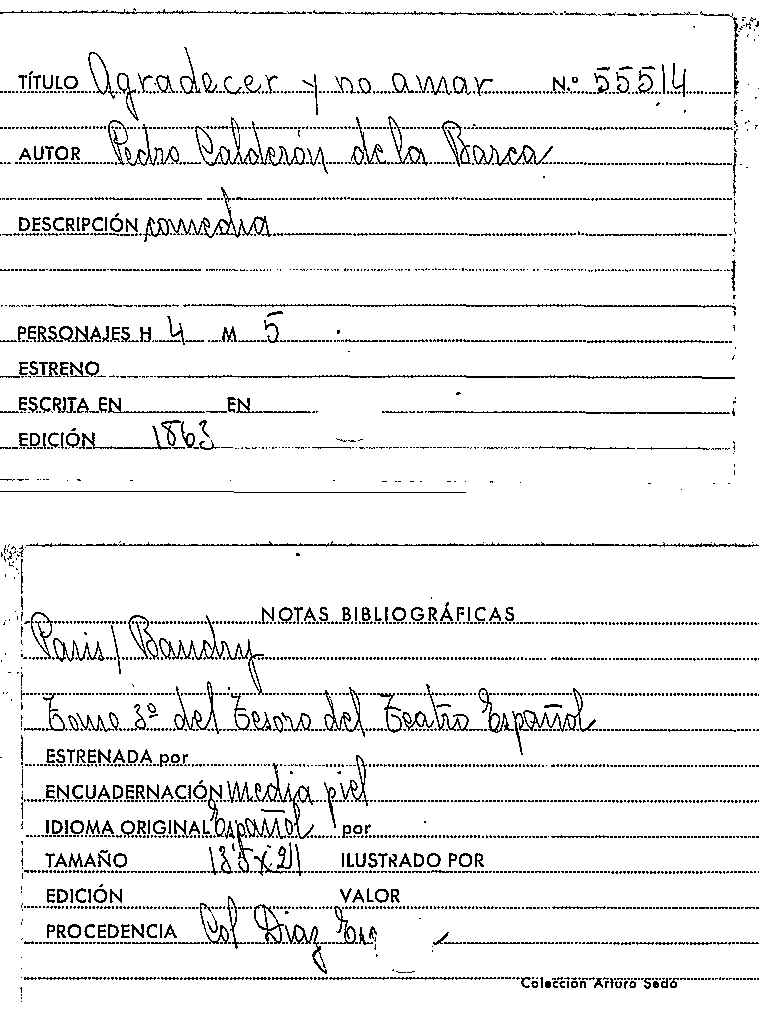 TÍTULO Agradecer y no amar N.º 55514
AUTOR Pedro Calderón de la Barca
DESCRIPCIÓN comedia
PERSONAJES H 4 M 5
ESTRENO
ESCRITA EN EN
EDICIÓN 1863
NOTAS BIBLIOGRÁFICAS
Paris / Baudry
Tomo 3º del Tesoro del Teatro Español
ESTRENADA por
ENCUADERNACIÓN media piel
IDIOMA ORIGINAL Español por
TAMAÑO 13'5 x 21 ILUSTRADO POR
EDICIÓN VALOR
PROCEDENCIA Col Diaz Esc
Colección Arturo Sedó